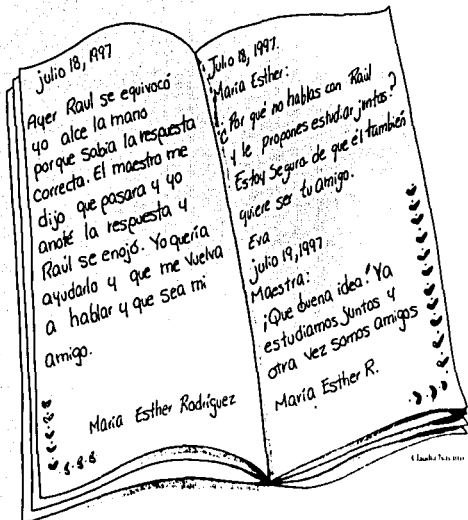 julio 18, 1997
Ayer Raul se equivocó
yo alce la mano
porque sabia la respuesta
correcta. El maestro me
dijo que pasara y yo
anoté la respuesta y
Raúl se enojó. Yo quería
ayudarlo y que me vuelva
a hablar y que sea mi
amigo.
María Esther Rodríguez
Julio 18, 1997.
María Esther:
¿Por qué no hablas con Raúl
y le propones estudiar juntos?
Estoy segura de que él también
quiere ser tu amigo.
Eva
julio 19, 1997
Maestra:
¡Que buena idea! Ya
estudiamos juntos y
otra vez somos amigos
María Esther R.